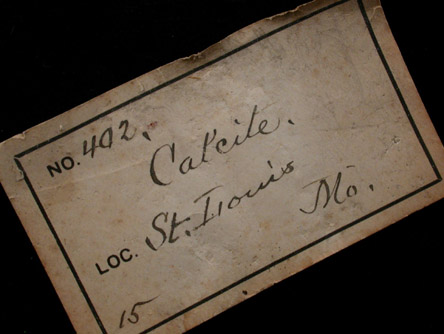 NO. 402.
Calcite.
LOC. St. Louis
Mo.
15